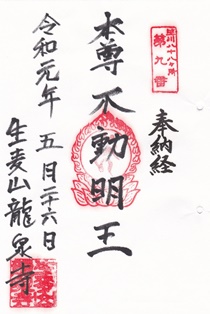 八十八ヶ所
第九番
奉納経
本尊不動明王
令和元年 五月二十六日
生麦山龍泉寺